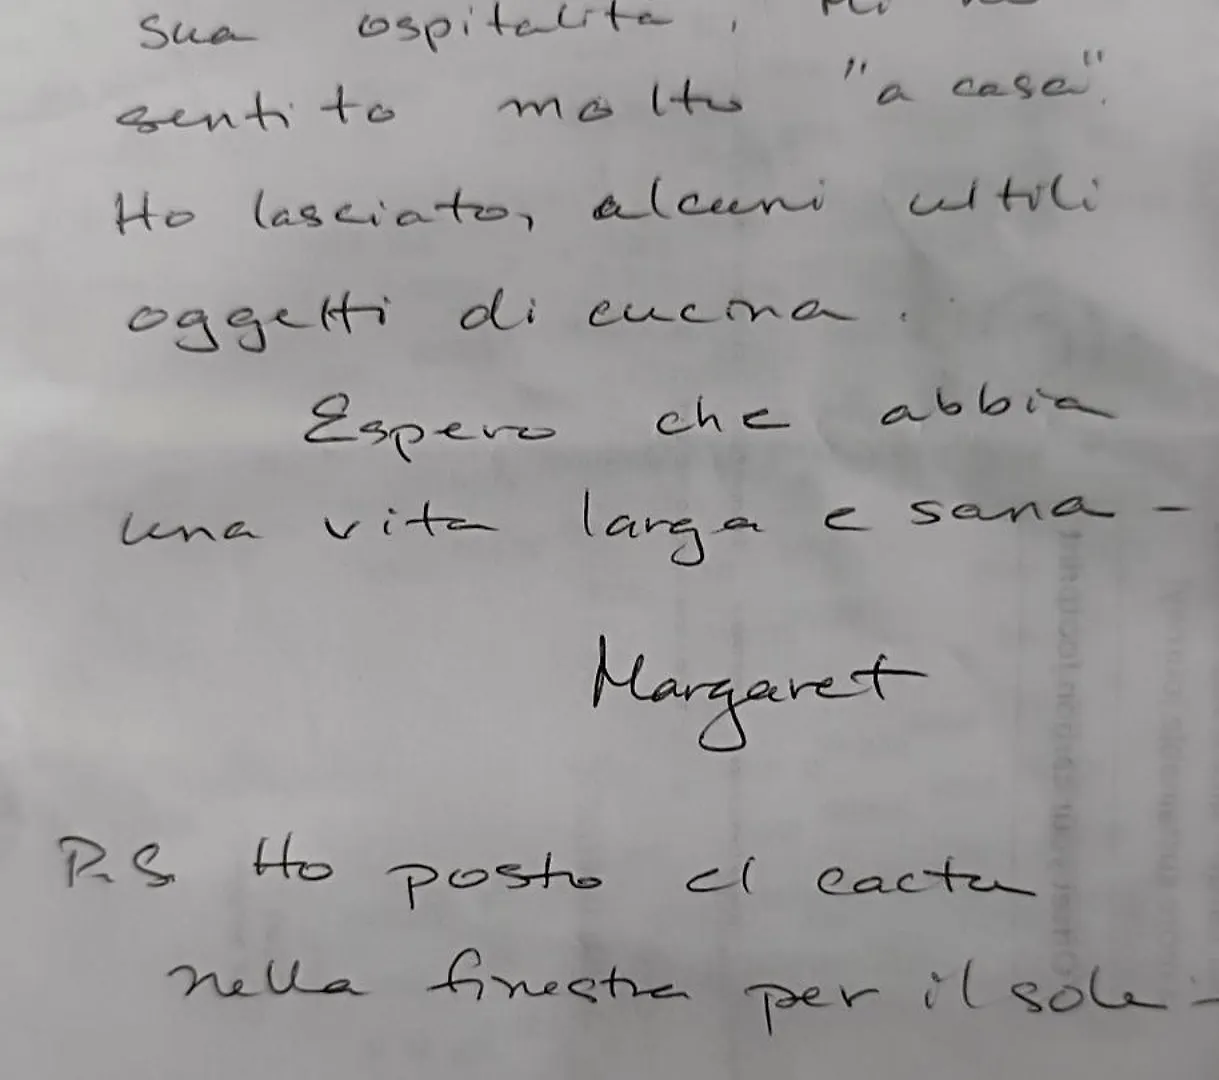 sua ospitalita, Mi
sentito molto "a casa".
Ho lasciato, alcuni ultili
oggetti di cucina.
Espero che abbia
una vita larga e sana -
Margaret
P.S. Ho posto el cactu
nella finestra per il sole -